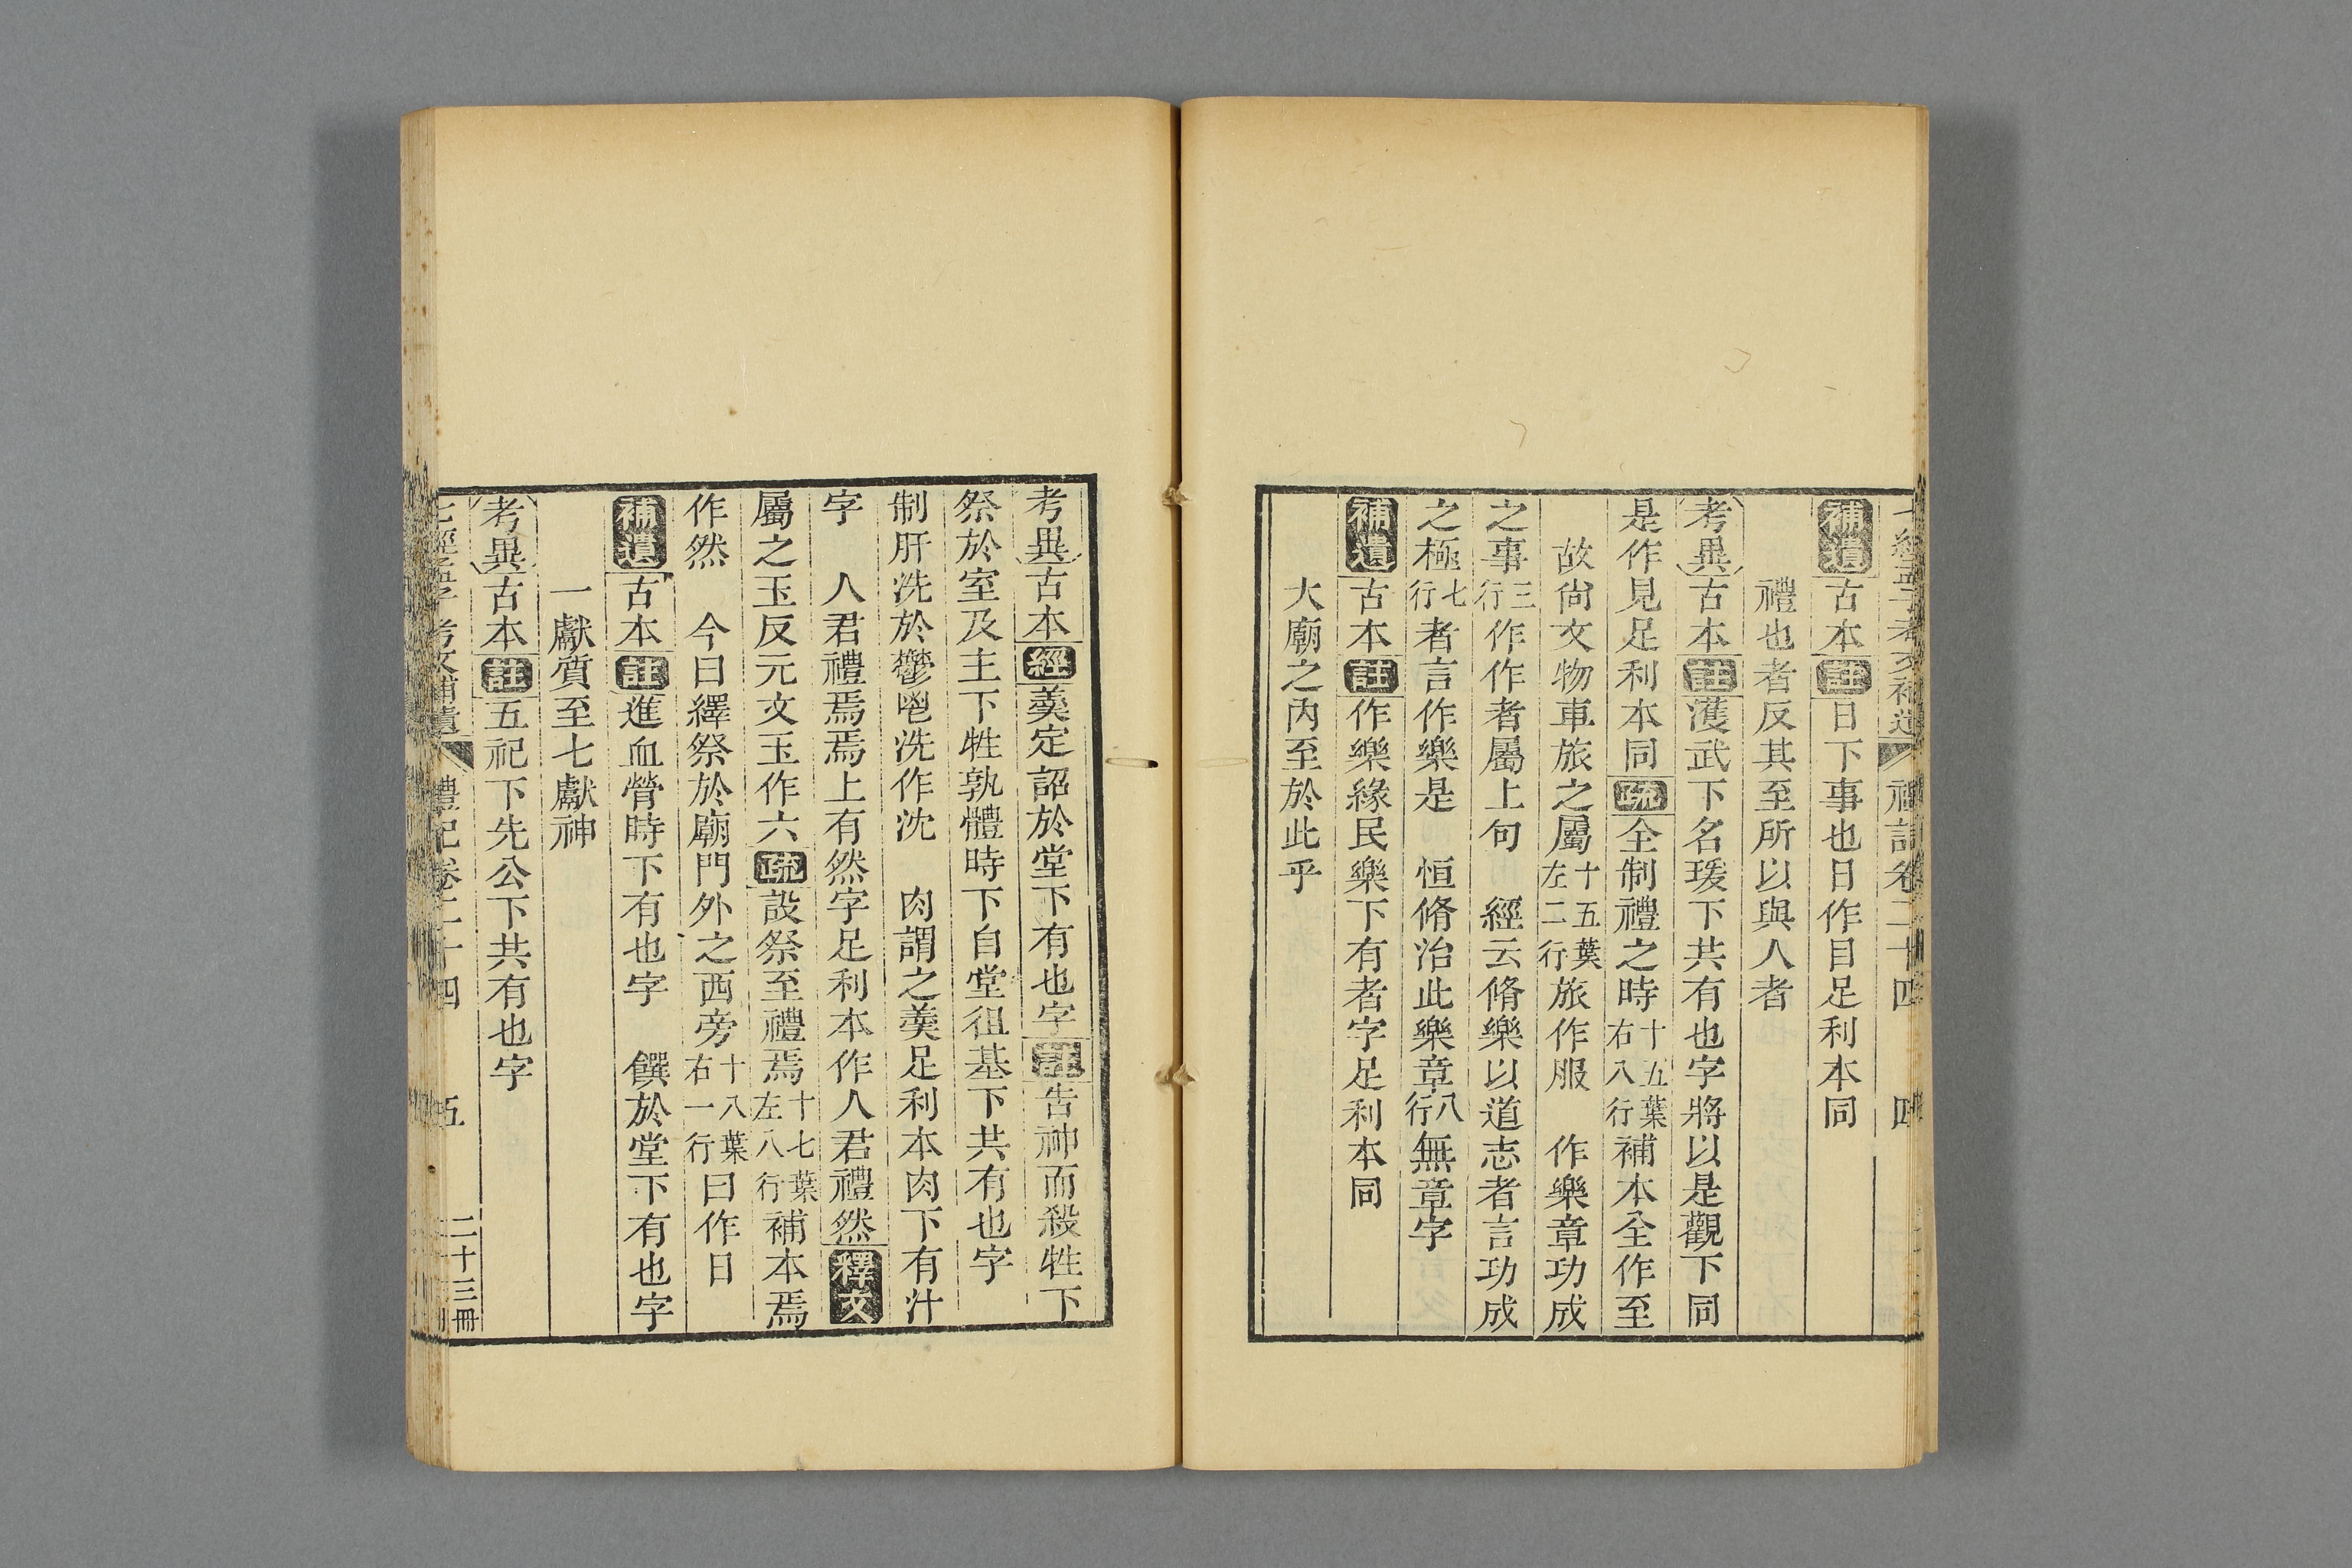 七經孟子考文補遺 禮記卷二十四 四
補遺古本註日下事也日作目足利本同
禮也者反其至所以與人者
考異古本註濩武下名瑗下共有也字將以是觀下同
是作見足利本同疏全制禮之時十五葉右八行補本全作至
故尙文物車旅之屬十五葉左二行旅作服 作樂章功成
之事三行作作者屬上句 經云脩樂以道志者言功成
之極七行者言作樂是 恒脩治此樂章八行無章字
補遺古本註作樂緣民樂下有者字足利本同
大廟之內至於此乎
考異古本經羹定詔於堂下有也字註告神而殺牲下
祭於室及主下牲孰體時下自堂徂基下共有也字
制肝洗於鬱鬯洗作沈 肉謂之羹足利本肉下有汁
字 人君禮焉焉上有然字足利本作人君禮然釋文
屬之玉反元文玉作六疏設祭至禮焉十七葉左八行補本焉
作然 今日繹祭於廟門外之西旁十八葉右一行曰作日
補遺古本註進血膋時下有也字 饌於堂下有也字
一獻質至七獻神
考異古本註五祀下先公下共有也字
七經孟子考文補遺 禮記卷二十四 五 二十三冊